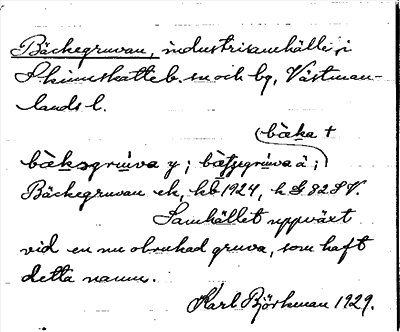 Bäckegruvan, industrisamhälle i
Skinnskatteb. sn och bg, Västman-
lands l.
bæka +
bæksgruva y ; gruva ä ;
Bäckegruvan ek, kb 1924, k G. 82 S V.
Samhället uppväxt
vid en nu obrukad gruva, som haft
detta namn.
Karl Björkman 1929.